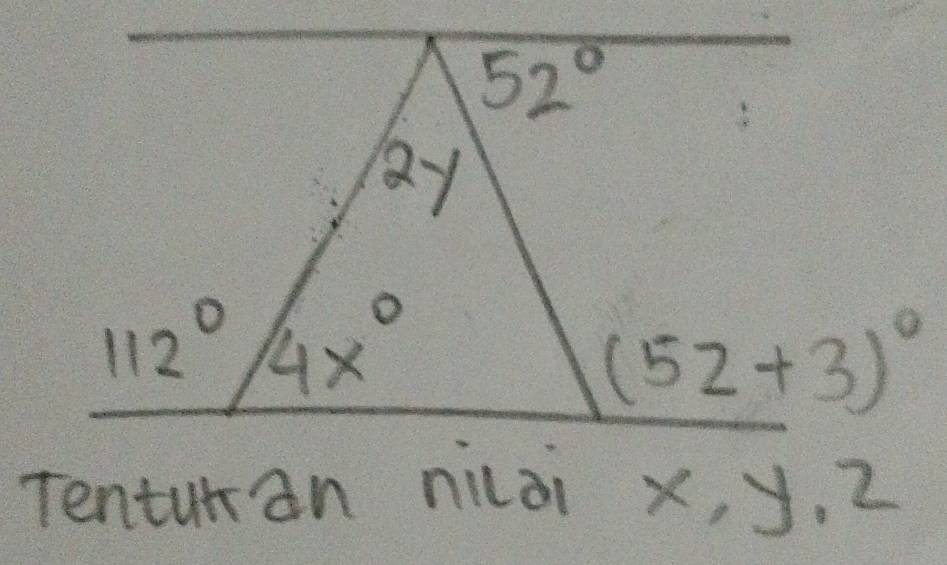 52°
2y
112° 4x° (5z+3)°
Tentukan nilai x, y, z